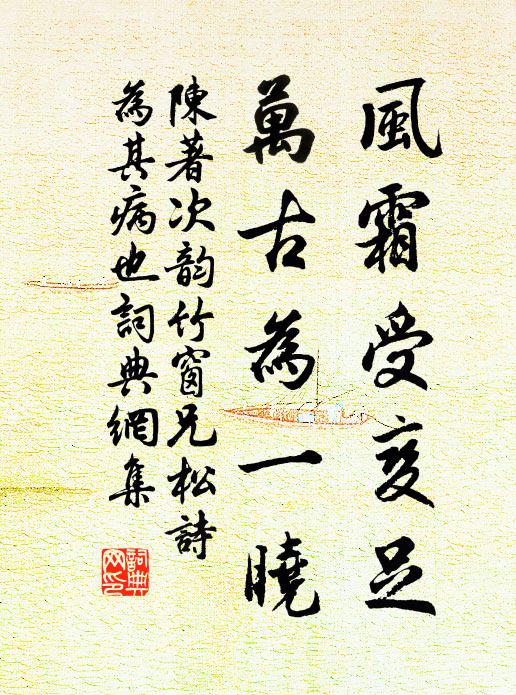 風霜受变足
萬古為一曉
陳著次韵竹窗兄松詩
為其病也詞典網集
詞典
网印